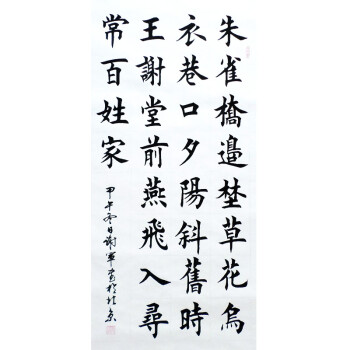 朱雀橋邊埜草花烏
衣巷口夕陽斜舊時
王謝堂前燕飛入尋
常百姓家
甲午冬日謝軍書於北京